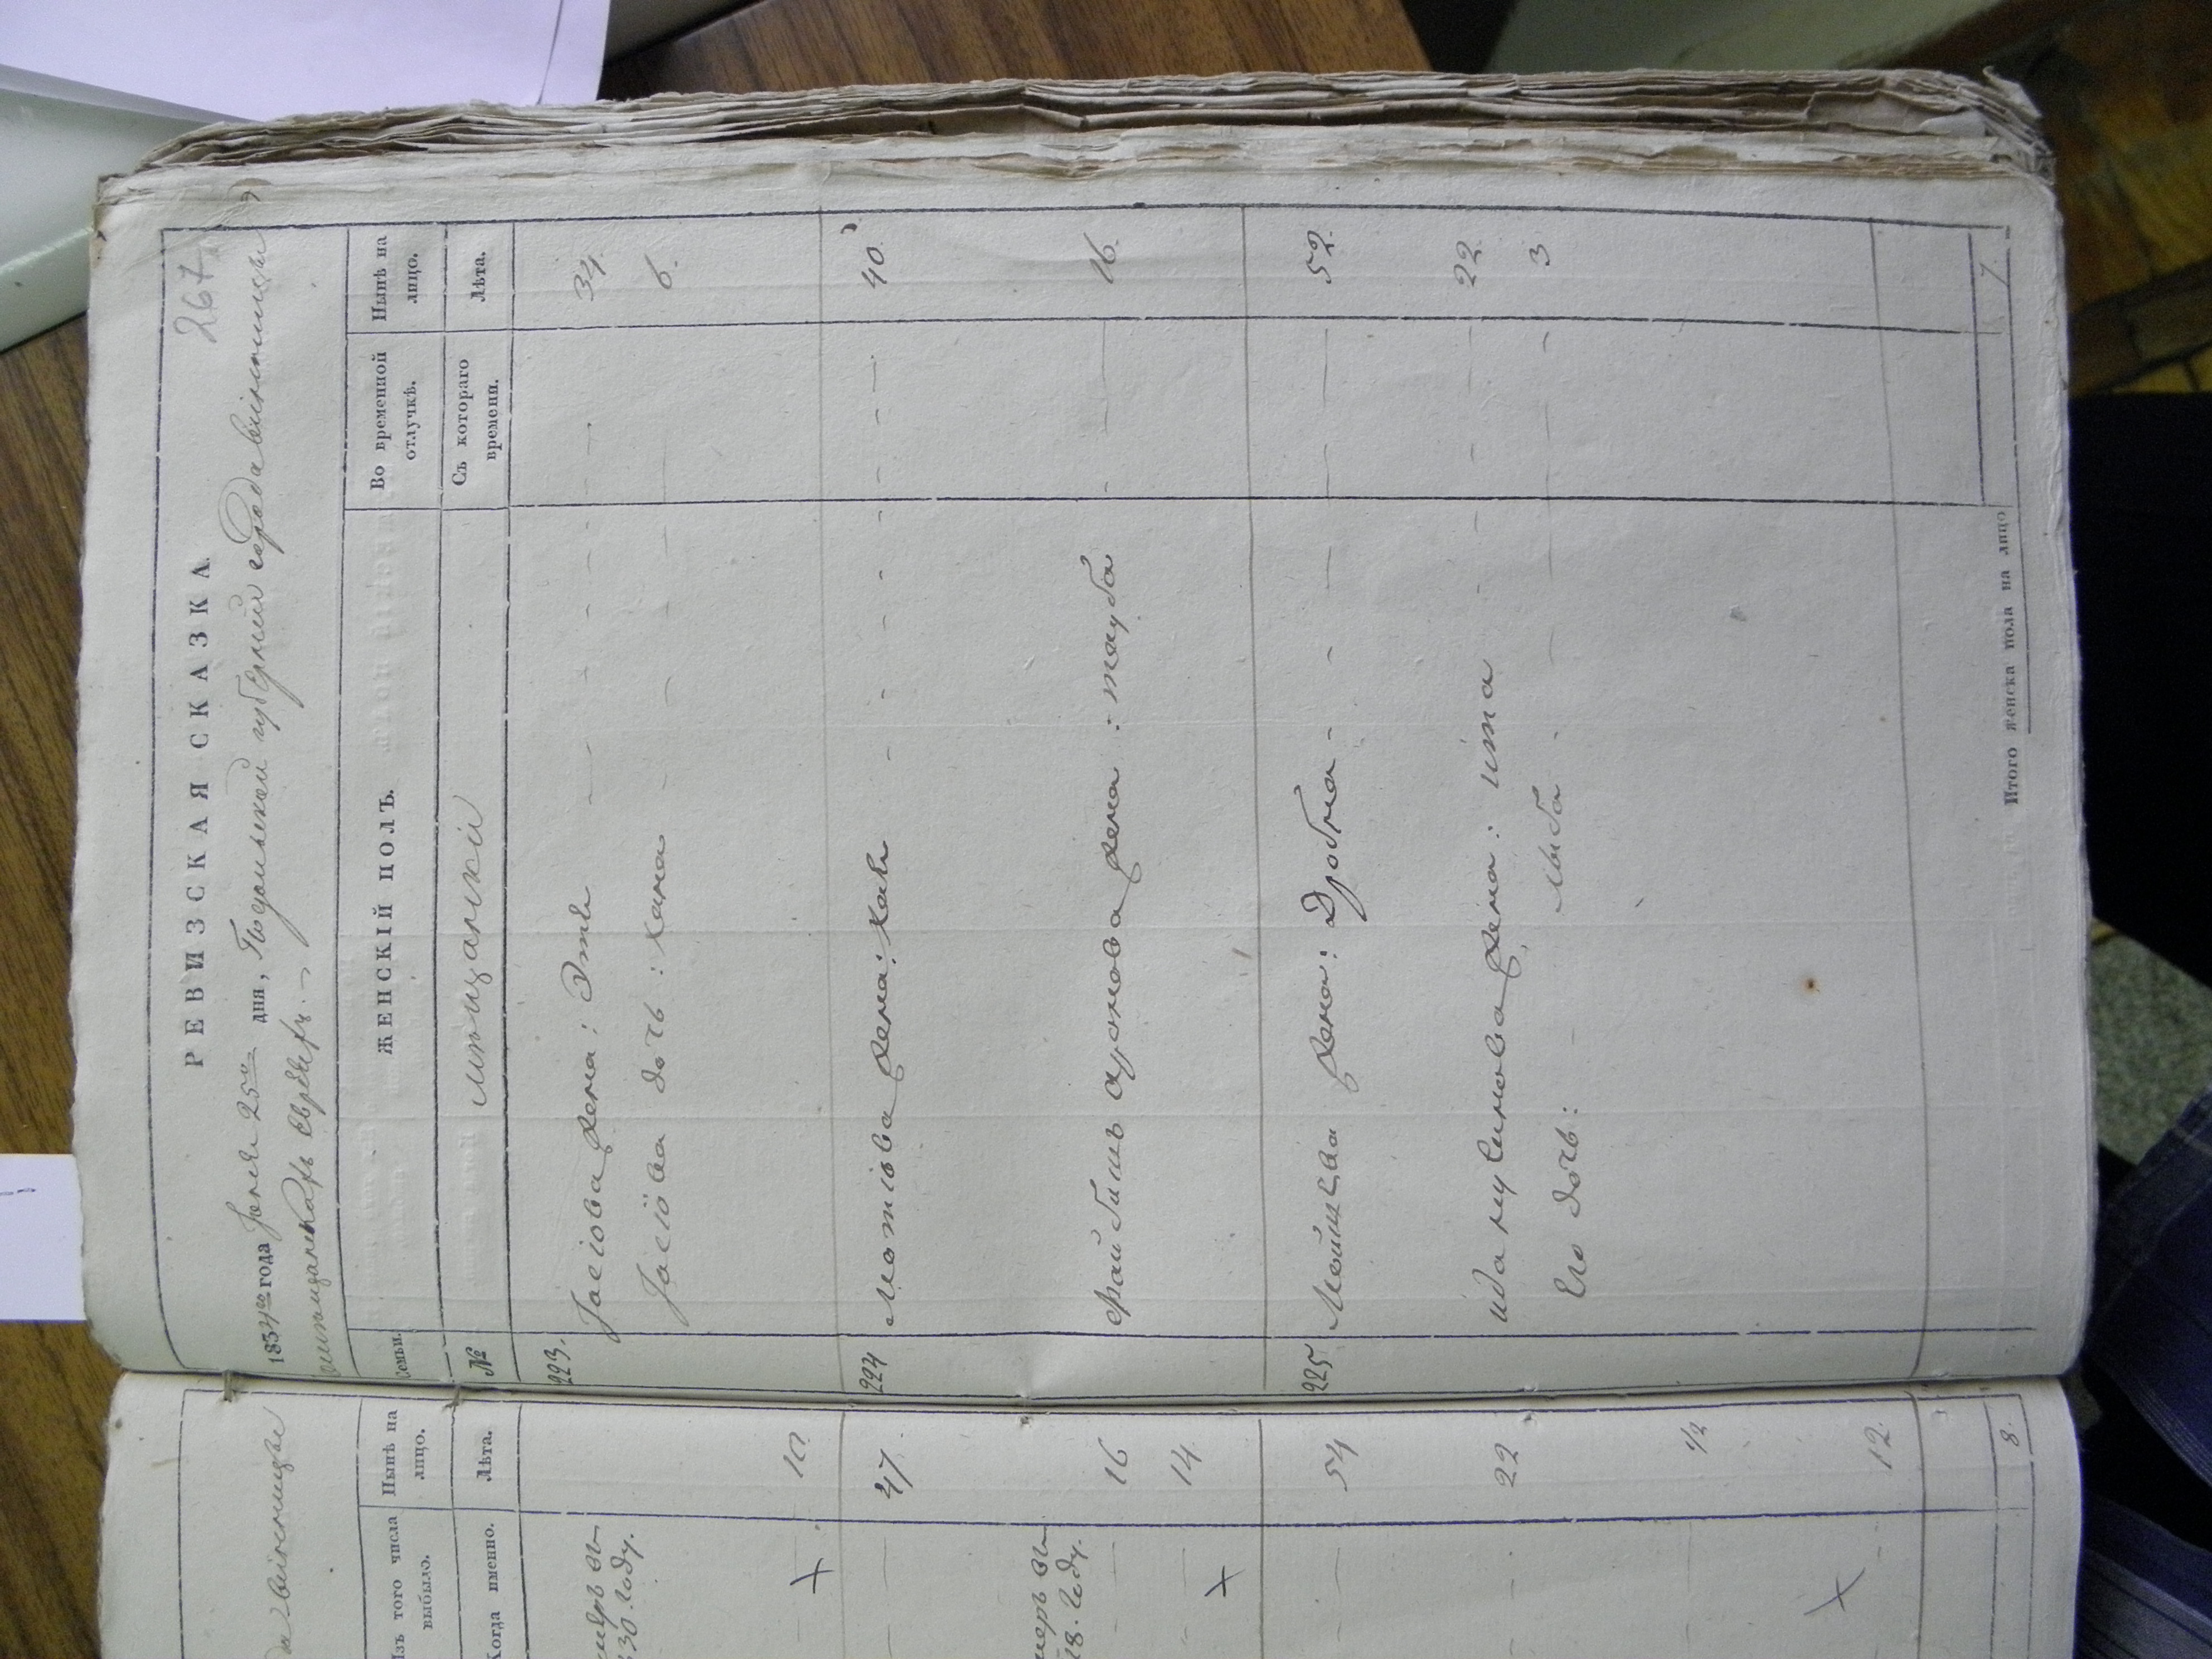 267
РЕВИЗСКАЯ СКАЗКА
1834го года Июня 25го дня, Подольской губернии города Винницы
мещанскихъ Евреевъ.
Семьи. ЖЕНСКІЙ ПОЛЪ. Во временной отлучкѣ. Нынѣ на лицо.
№ мещанскій Съ котораго времени. Лѣта.
223. Іосіова жена: Этле 34.
Іосіова дочь: хана 6.
224 Мотіова жена: Хаве 40.
Файбишъ Ароновва жена: тауба 16.
225 Мойшева жена: Дробна 52.
жена: ита 22.
Его дочь: 3
Итого женска пола на лицо 7.
Винницы
Изъ того числа выбыло. Нынѣ на лицо.
Когда именно. Лѣта.
умеръ въ
830. году.
10.
47.
умеръ въ
18. году.
16
14.
54
22
1/2
12.
8.